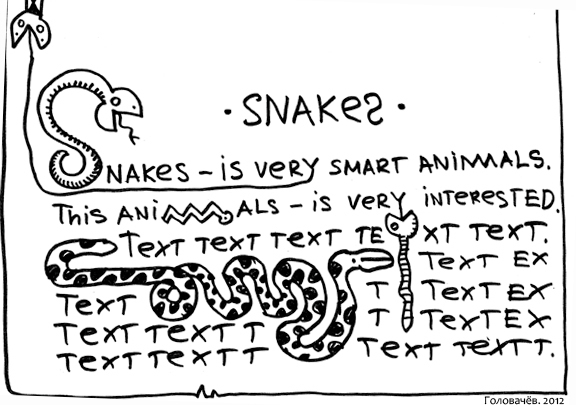 · SNAKES ·
SNAKES – is VERY SMART ANIMALS.
This ANIMALS – is VERY INTERESTED.
TEXT TEXT TEXT TEXT TEXT.
TEXT EX
TEXT T TEXT EX
TEXT TEXT T T TEXTEX
TEXT TEXT T TEXT TEXTT.
Головачёв. 2012